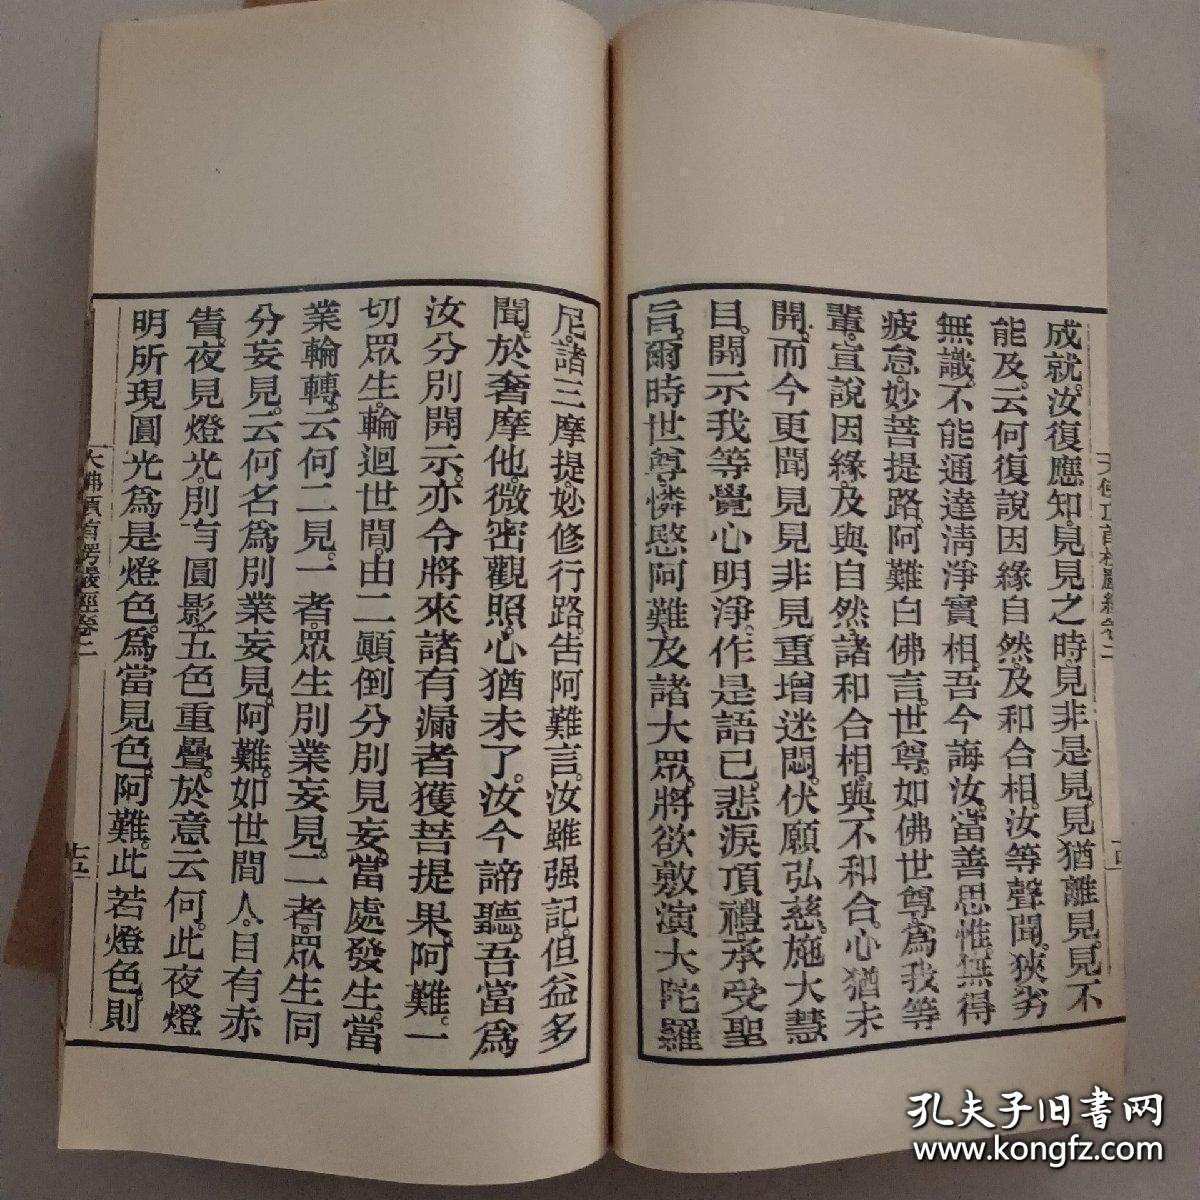 成就。汝復應知。見見之時。見非是見。見猶離見。見不
能及。云何復說因緣自然。及和合相。汝等聲聞。狹劣
無識。不能通達清淨實相。吾今誨汝。當善思惟。無得
疲怠。妙菩提路。阿難白佛言。世尊。如佛世尊。為我等
輩。宣說因緣。及與自然。諸和合相。與不和合。心猶未
開。而今更聞見見非見。重增迷悶。伏願弘慈。施大慧
目。開示我等。覺心明淨。作是語已。悲淚頂禮。承受聖
旨。爾時世尊。憐愍阿難。及諸大眾。將欲敷演大陀羅
尼。諸三摩提。妙修行路。告阿難言。汝雖强記。但益多
聞。於奢摩他。微密觀照。心猶未了。汝今諦聽。吾當為
汝分別開示。亦令將來諸有漏者。獲菩提果。阿難。一
切眾生。輪迴世間。由二顛倒分別見妄。當處發生。當
業輪轉。云何二見。一者。眾生別業妄見。二者。眾生同
分妄見。云何名為別業妄見。阿難。如世間人。目有赤
眚。夜見燈光。別有圓影。五色重疊。於意云何。此夜燈
明所現圓光。為是燈色。為當見色。阿難。此若燈色。則
大佛頂首楞嚴經卷二
十五
孔夫子旧书网
www.kongfz.com